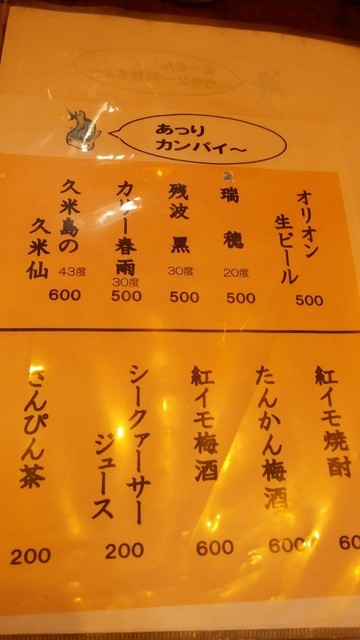 あっり
カンパイ～
オリオン
生ビール
500
瑞穂
20度
500
残波 黒
30度
500
カリー春雨
30度
500
久米島の
久米仙
43度
600
紅イモ焼酎
たんかん梅酒
600
紅イモ梅酒
600
シークァーサー
ジュース
200
さんぴん茶
200